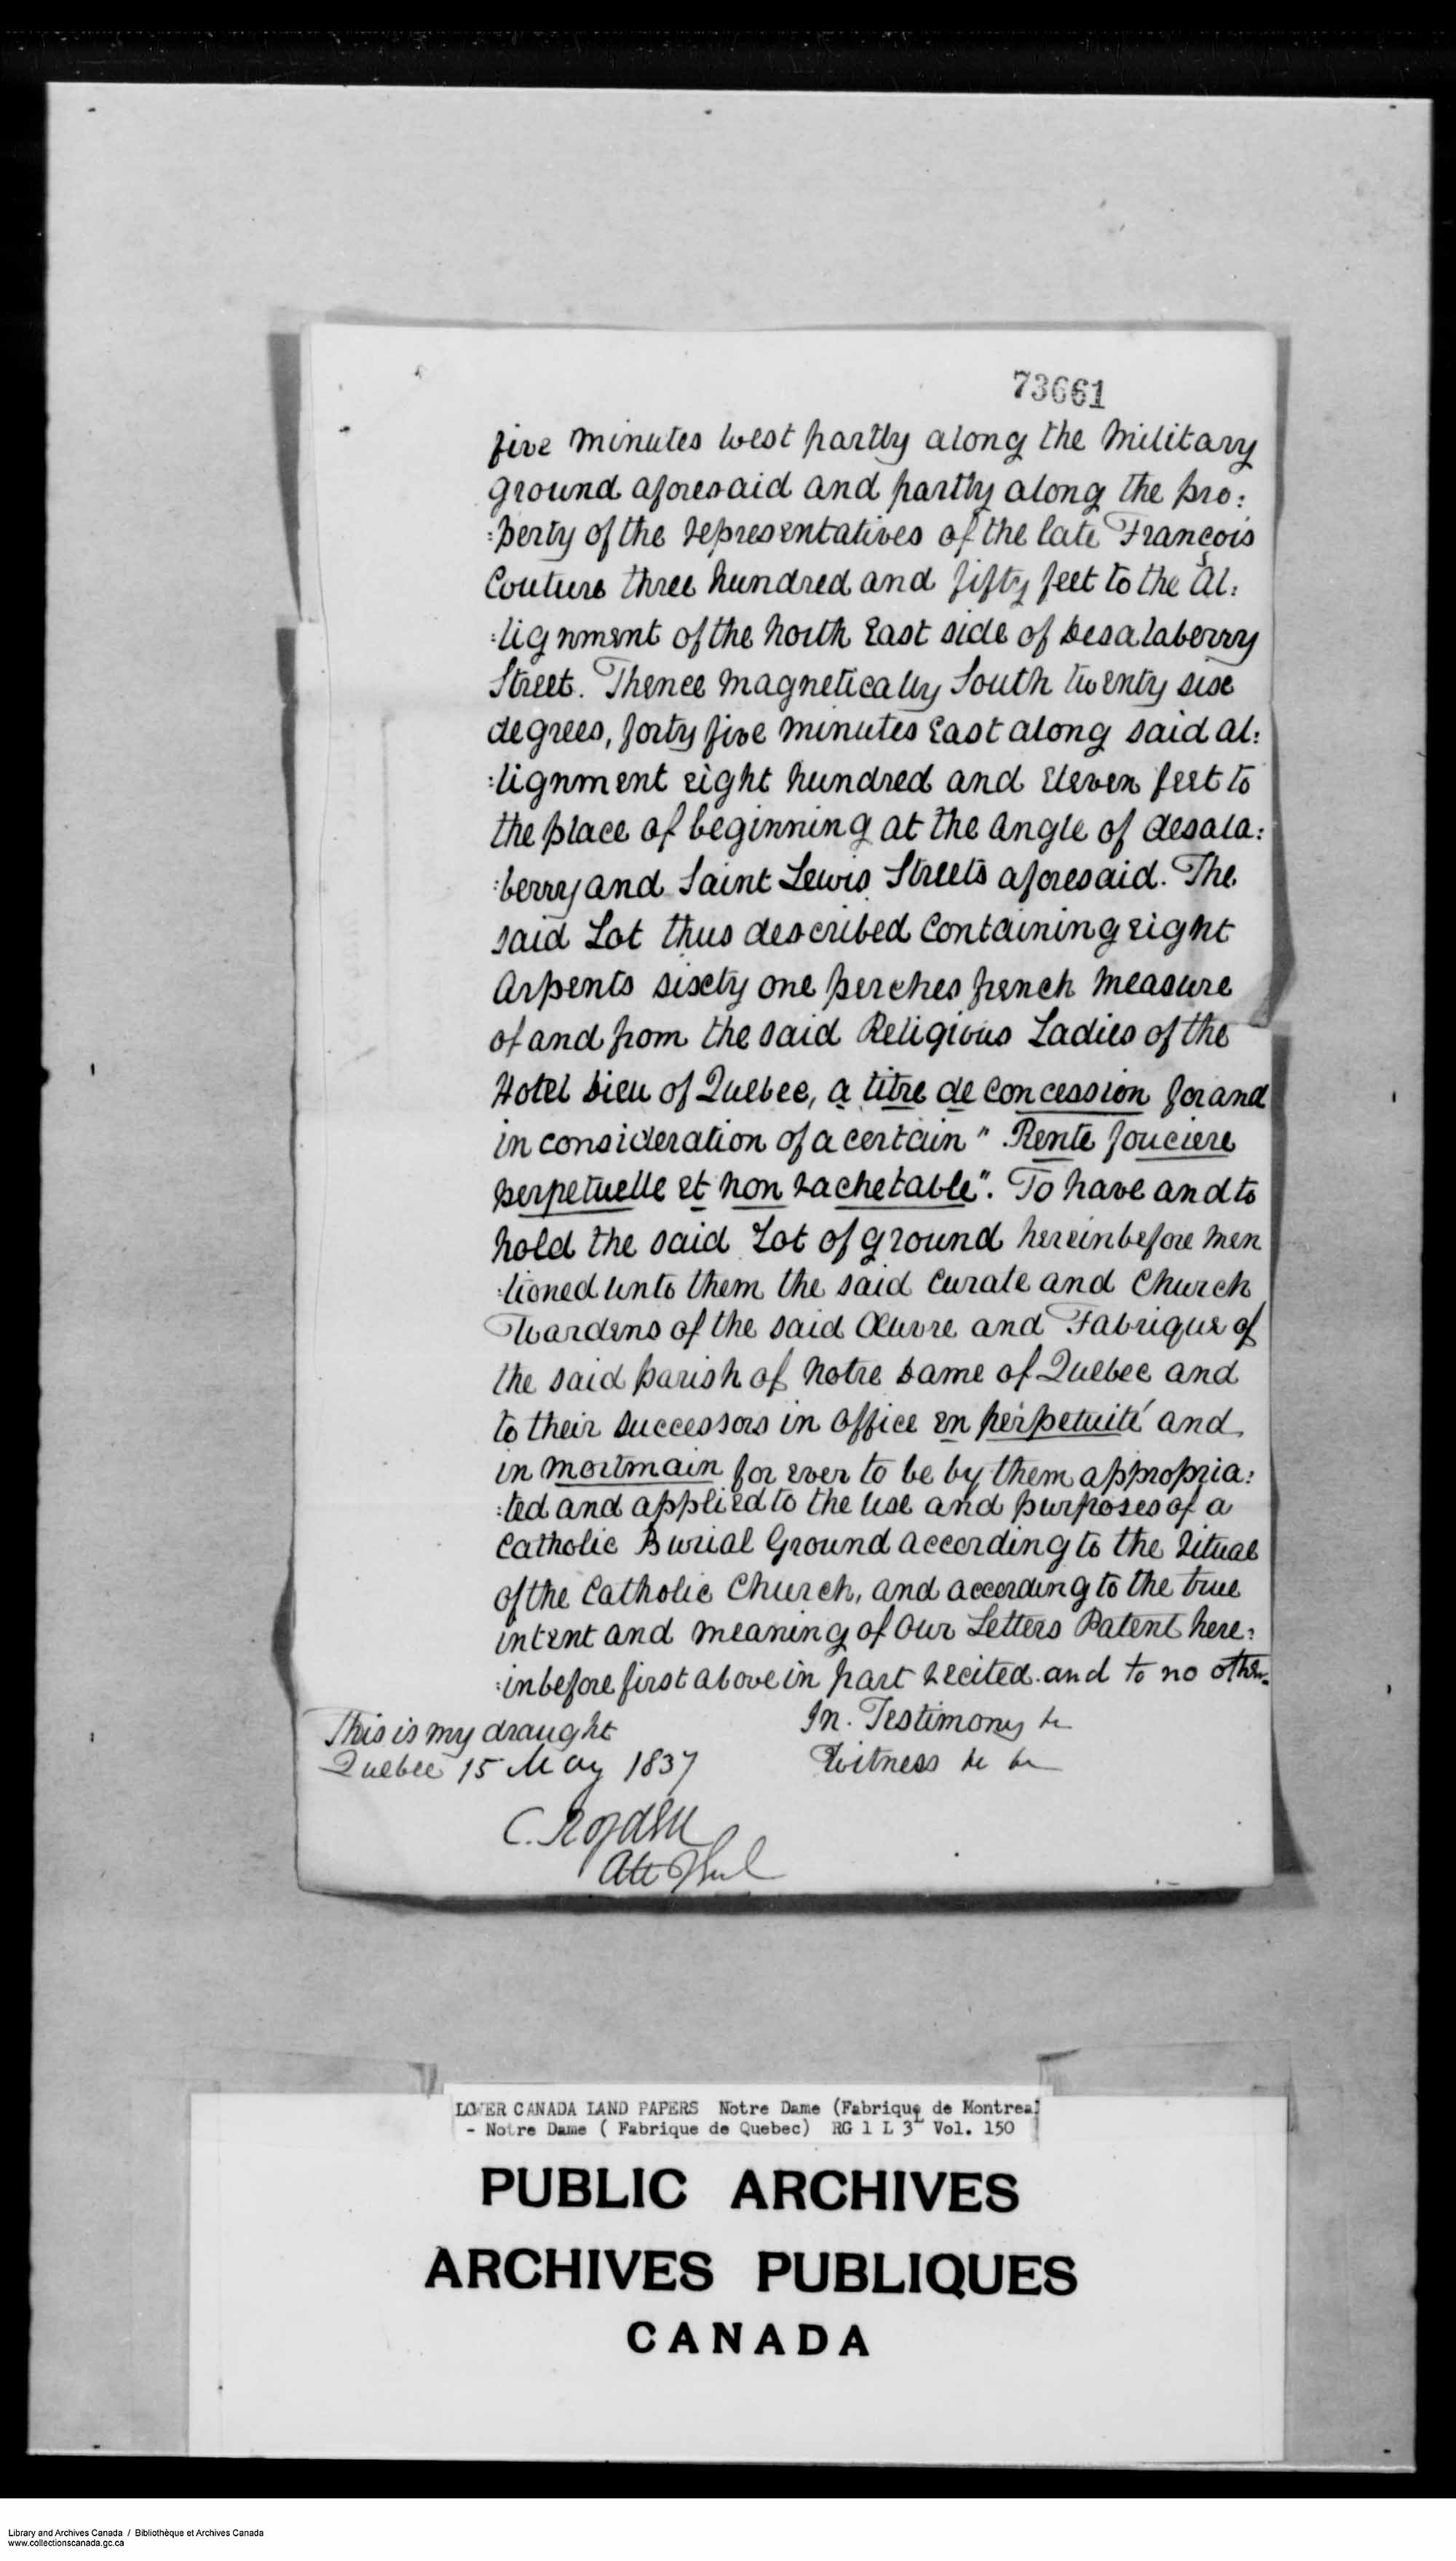 73661
five minutes West partly along the Military
ground aforesaid and partly along the pro:
:perty of the representatives of the late François
Couture three hundred and fifty feet to the al:
:lignment of the North East side of Desalaberry
Street. Thence magnetically South twenty six
degrees, forty five minutes East along said al:
:lignment eight hundred and eleven feet to
the place of beginning at the angle of desala:
:berry and Saint Lewis Streets aforesaid. The
said Lot thus described containing eight
Arpents sixty one perches french measure
of and from the said Religious Ladies of the
Hotel Dieu of Quebec, a titre de concession for and
in consideration of a certain " Rente fonciere
perpetuelle et non rachetable". To have and to
hold the said Lot of ground hereinbefore men
:tioned unto them the said Curate and Church
Wardens of the said Œuvre and Fabrique of
the said parish of Notre Dame of Quebec and
to their successors in office en perpetuité and
in mortmain for ever to be by them appropria:
:ted and applied to the use and purposes of a
Catholic Burial Ground according to the Ritual
of the Catholic Church, and according to the true
intent and meaning of Our Letters Patent here:
:inbefore first above in part recited. and to no other.
In Testimony &c
This is my draught
Witness &c &c
Quebec 15 May 1837
C. R. Ogden
Att Genl
LOWER CANADA LAND PAPERS Notre Dame (Fabrique de Montreal
- Notre Dame ( Fabrique de Quebec) RG 1 L 3L Vol. 150
PUBLIC ARCHIVES
ARCHIVES PUBLIQUES
CANADA
Library and Archives Canada / Bibliothèque et Archives Canada
www.collectionscanada.gc.ca